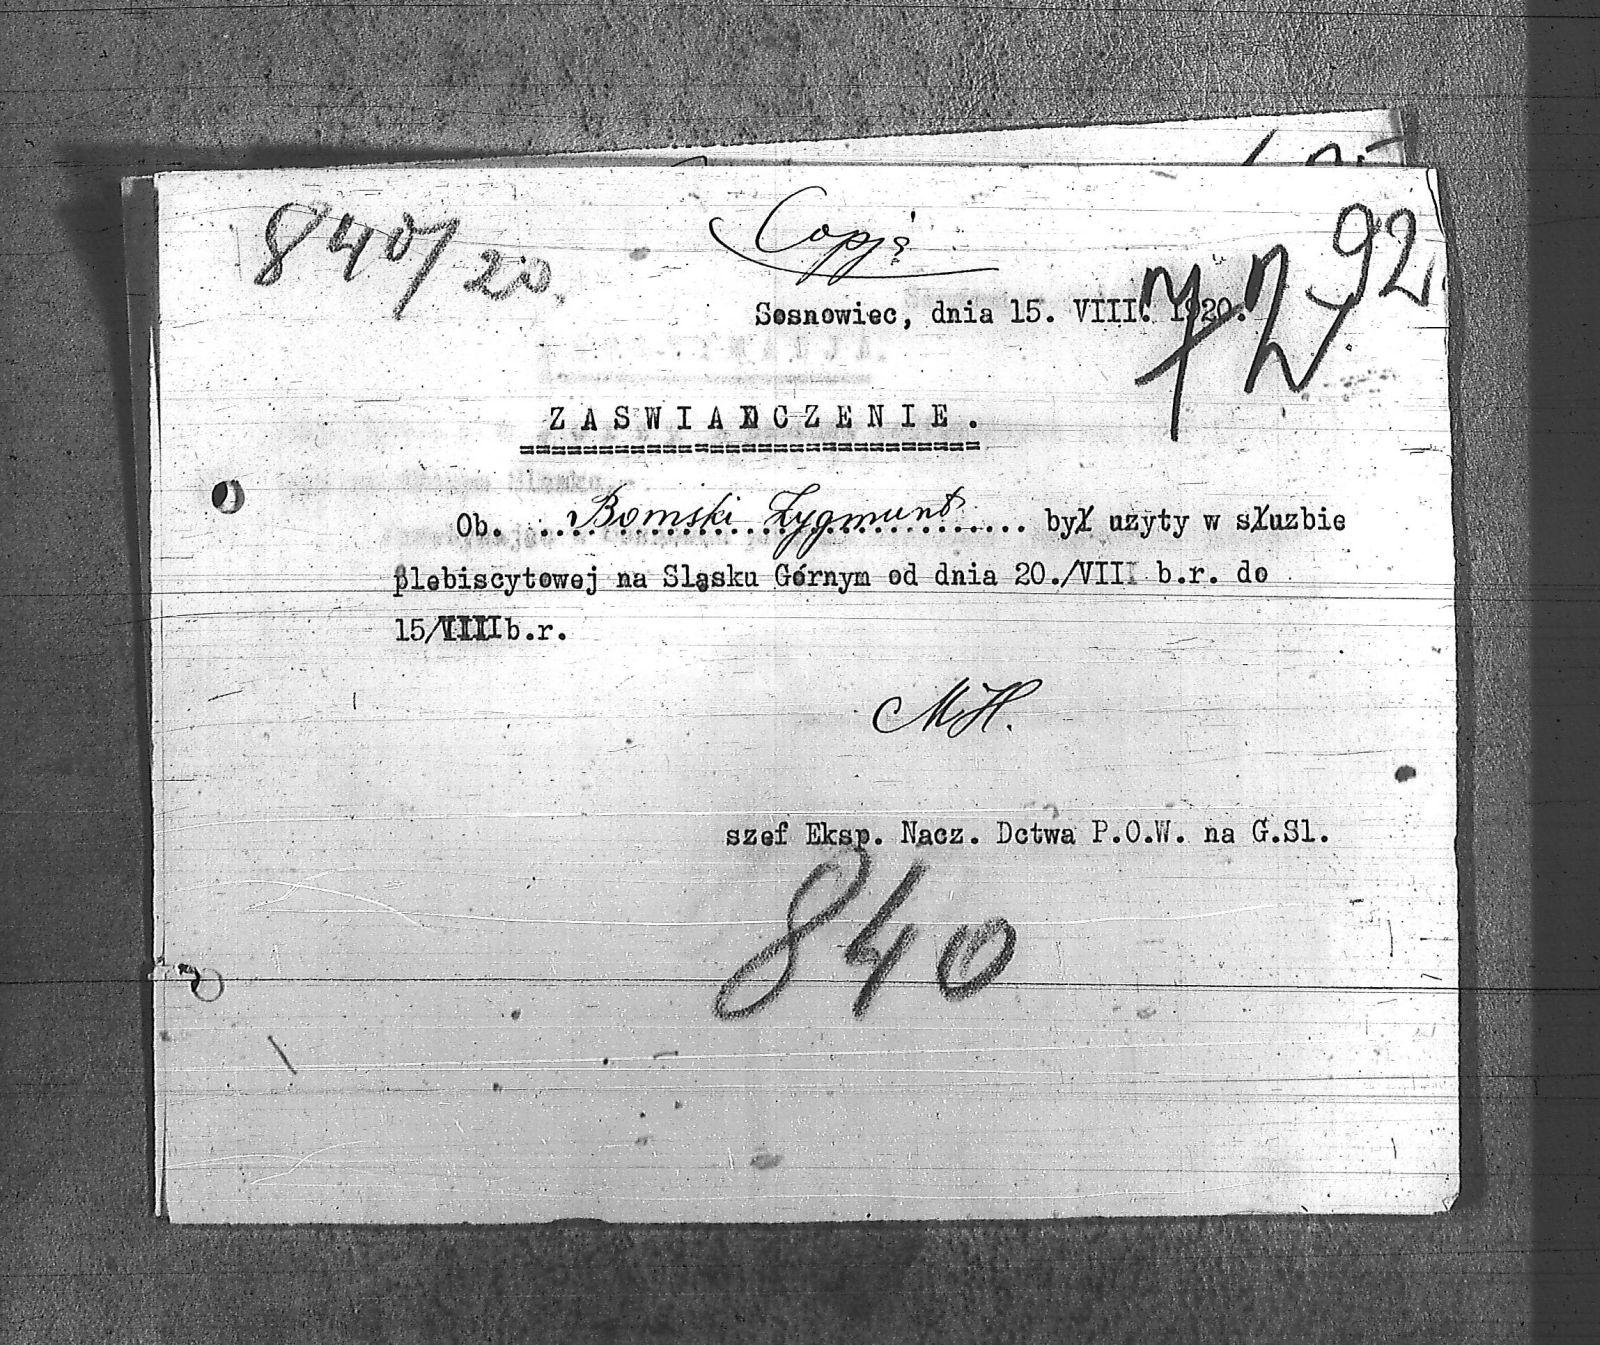 840/20.
Copja
92
72
Sosnowiec, dnia 15. VIII. 1920.
ZASWIADCZENIE.
Ob. Bomski Zygmunt był uzyty w słuzbie
plebiscytowej na Sląsku Górnym od dnia 20./VII b.r. do
15/VIII b.r.
MH.
szef Eksp. Nacz. Dctwa P.O.W. na G.Sl.
840